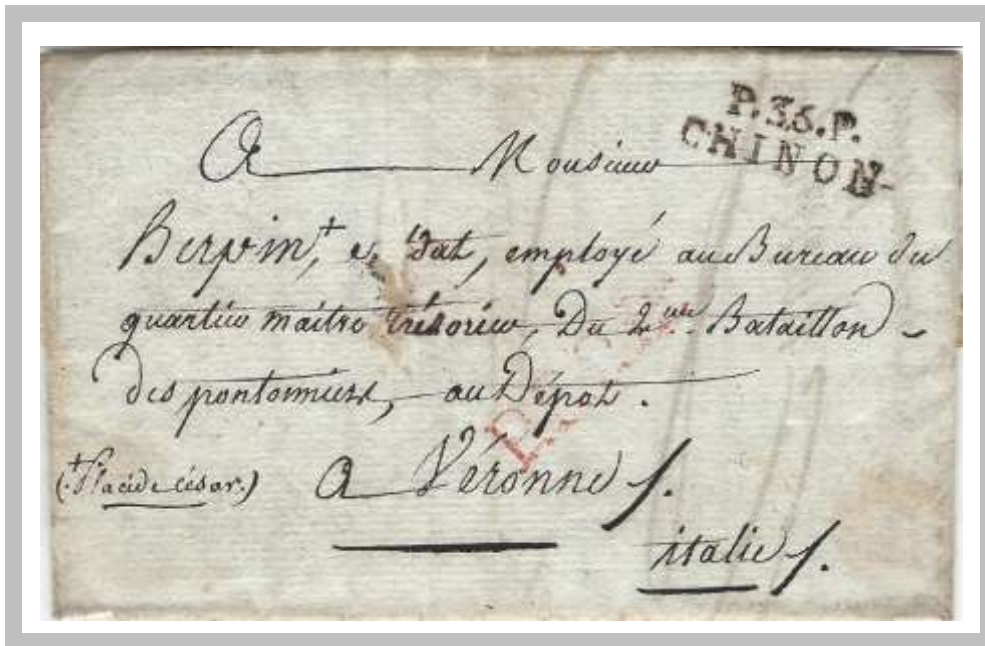 P.36.P.
CHINON
A Monsieur
employé au Bureau du
quartier maitre trésorier, Du 2eme Bataillon
des pontonniers, au Dépot.
(Placide César.) a Véronne
italie